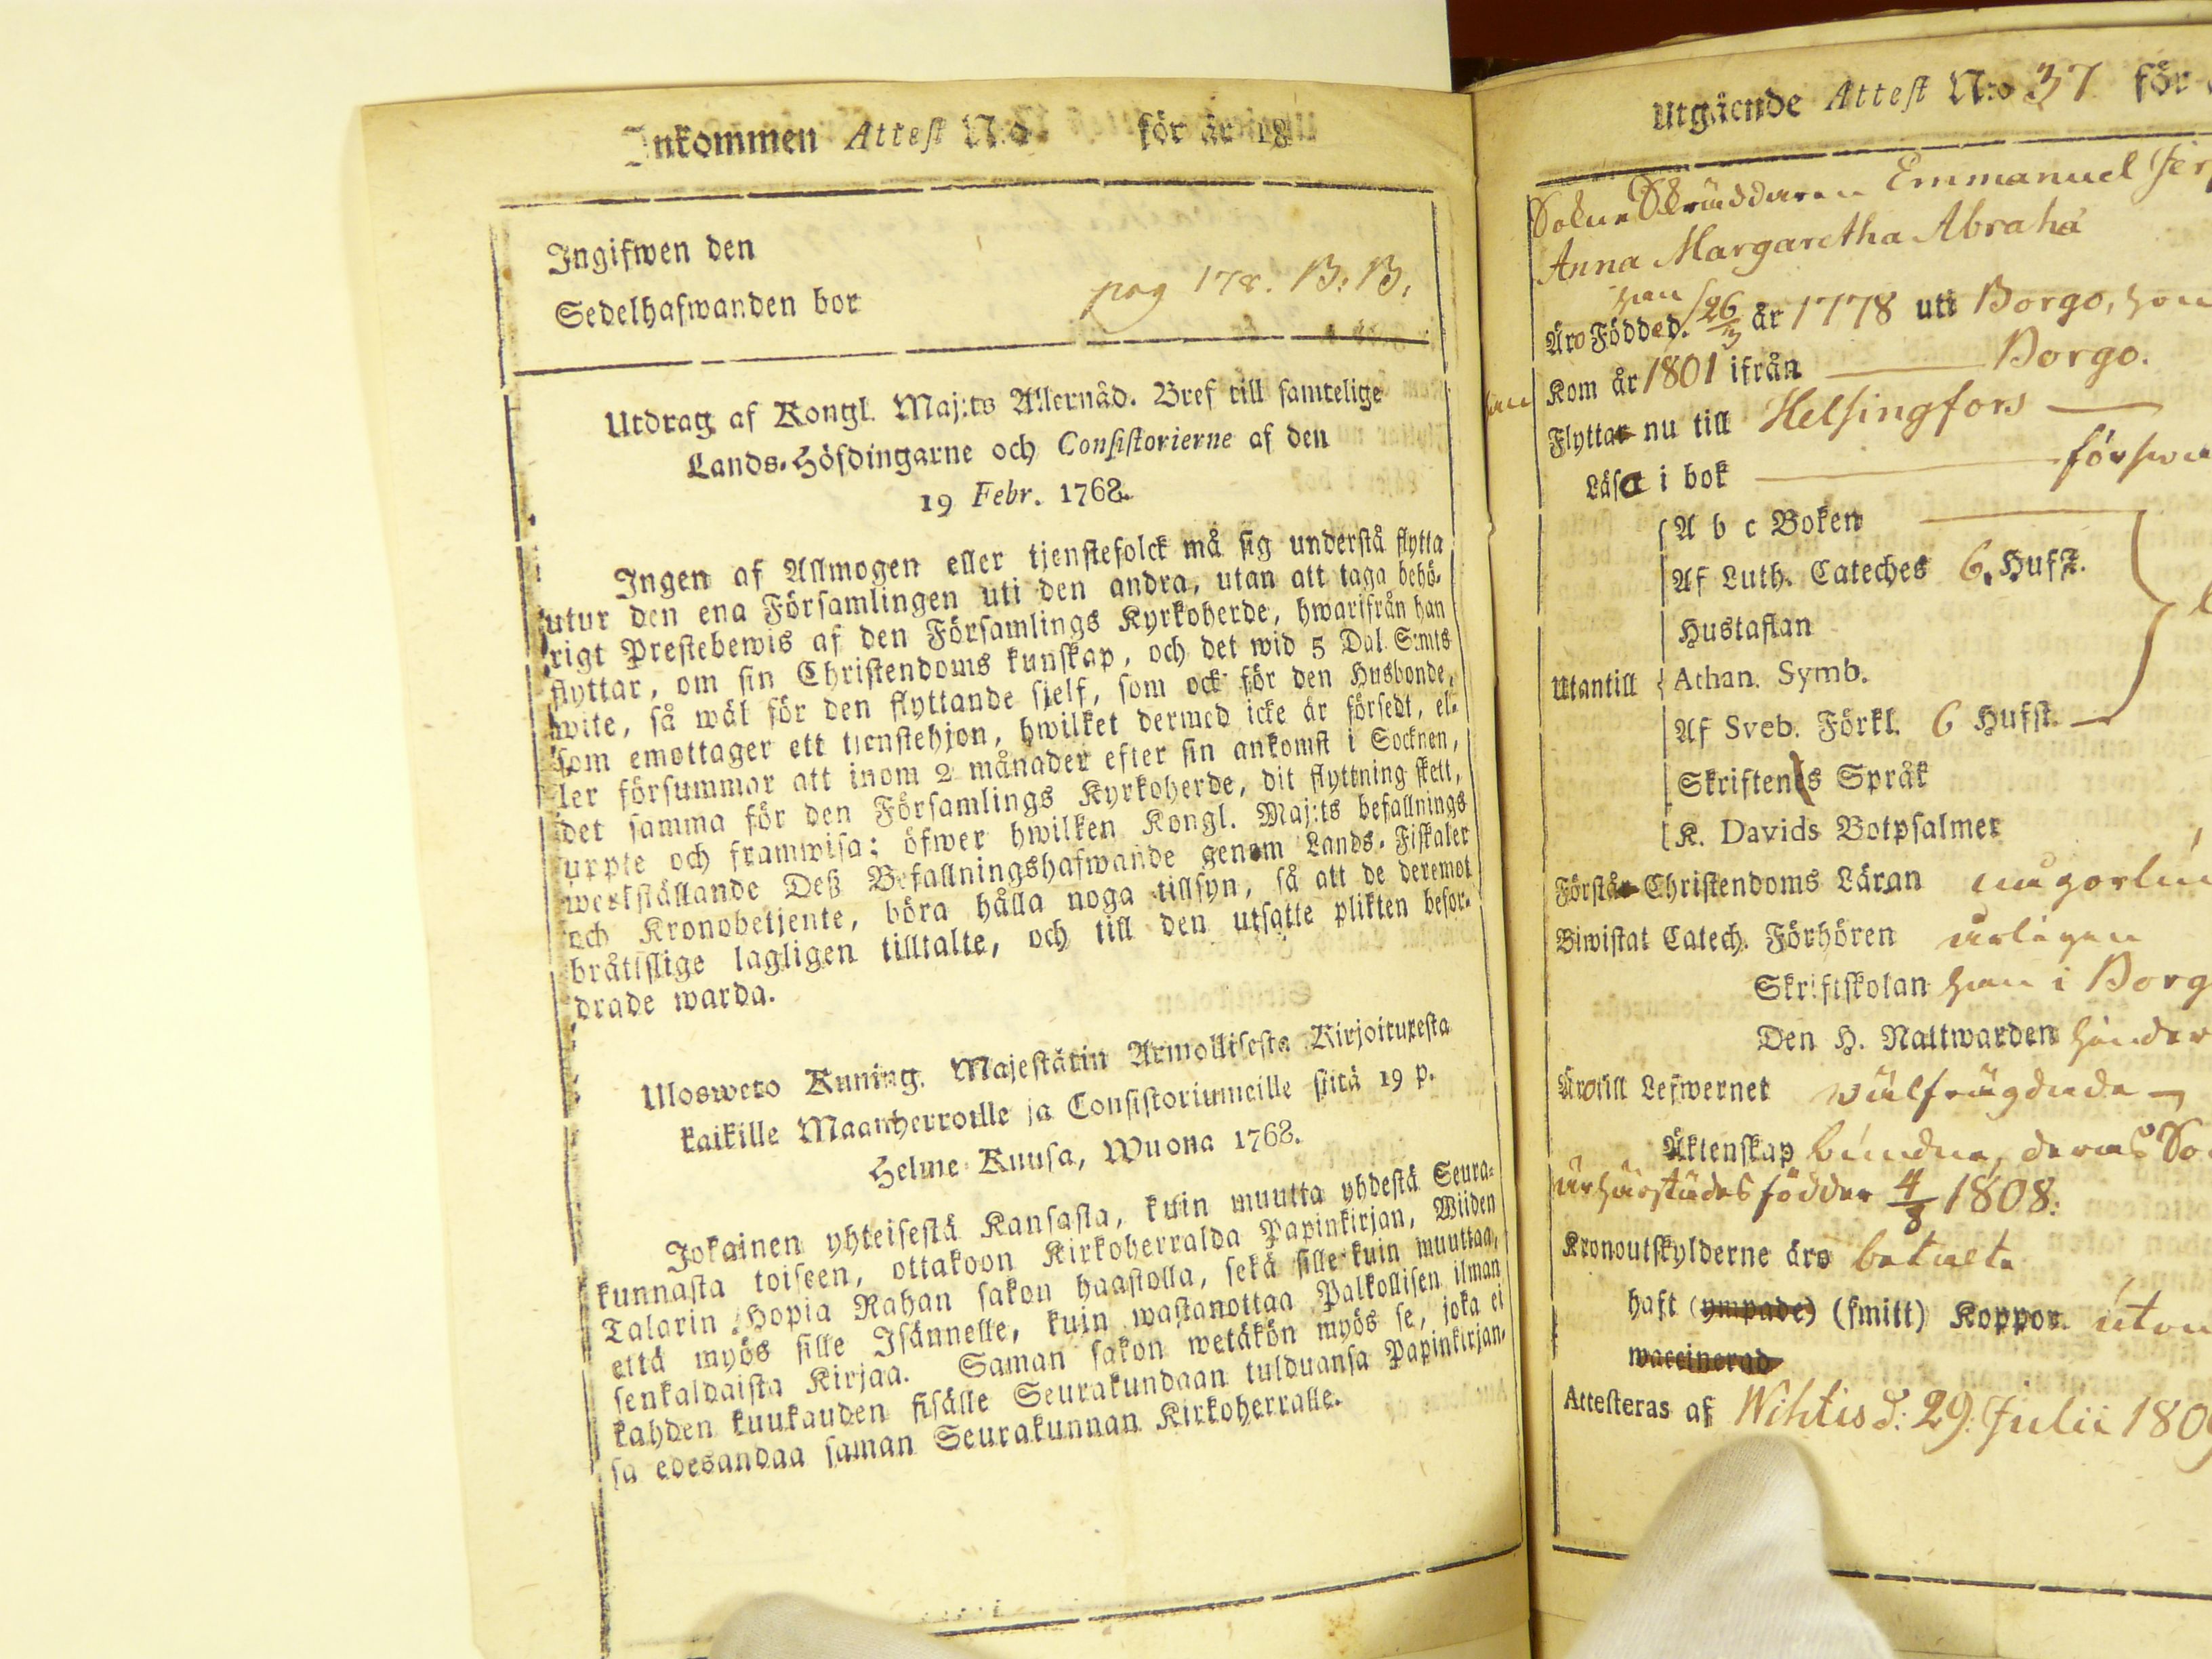 Inkommen Attest N:o för år 18
Ingifwen den
Sedelhafwanden bor
pag 178. B. B.
Utdrag af Kongl. Maj:ts Allernåd. Bref till samtelige
Lands-Höfdingarne och Consistorierne af den
19 Febr. 1768.
Ingen af Allmogen eller tjenstefolck må sig understå flytta
utur den ena Församlingen uti den andra, utan att taga behö-
rigt Prestebewis af den Församlings Kyrkoherde, hwarifrån han
flyttar, om sin Christendoms kunskap, och det wid 5 Dal. S:mts
wite, så wäl för den flyttande sjelf, som ock för den Husbonde,
som emottager ett tjenstehjon, hwilket dermed icke är försedt, el-
ler försummar att inom 2 månader efter sin ankomst i Socknen,
det samma för den Församlings Kyrkoherde, dit flyttning skett,
uppte och framwisa; öfwer hwilken Kongl. Maj:ts befallnings
werkställande Deß Befallningshafwande genom Lands-Fiskaler
och Kronobetjente, böra hålla noga tillsyn, så att de deremot
bråtislige lagligen tilltalte, och till den utsatte plikten befor-
drade warda.
Ulosweto Kuning. Majestätin Armollisesta Kirjoituxesta
kaikille Maanherroille ja Consistoriumeille siitä 19 p.
Helme-Kuusa, Wuona 1768.
Jokainen yhteisestä Kansasta, kuin muutta yhdestä Seura-
kunnasta toiseen, ottakoon Kirkoherralda Papinkirjan, Wiiden
Talarin Hopia Rahan sakon haastolla, sekä sille kuin muuttaa,
että myös sille Isännelle, kuin wastanottaa Palkollisen ilman
senkaldaista Kirjaa. Saman sakon wetäkön myös se, joka ei
kahden kuukauden sisälle Seurakundaan tulduansa Papinkirjan-
sa edesandaa saman Seurakunnan Kirkoherralle.
Utgående Attest N:o 37 för
Sokne Skräddaren Emmanuel
Anna Margaretha Abraha
han
Äro Födde d. 26/3 år 1778 uti Borgo, hon
Kom år 1801 ifrån Borgo.
Flytta nu till Helsingfors
Läsa i bok
A b c Boken
Af Luth. Cateches 6. Hufst.
Hustaflan
Utantill Athan. Symb.
Af Sveb. Förkl. 6 Hufst.
Skriftenes Språk
K. Davids Botpsalmer
Förstår Christendoms Läran
Biwistat Catech. Förhören årligen
Skriftskolan han i Borg
Den H. Nattwarden
Äro till Lefwernet wälfrägdade
Äktenskap bundne, deras So
är härstädes födder 4/3 1808.
Kronoutskylderne äro betalte
haft (ympade) (smitt) Koppor. utan
waccinerad
Attesteras af Wihtis d: 29. Julii 1809